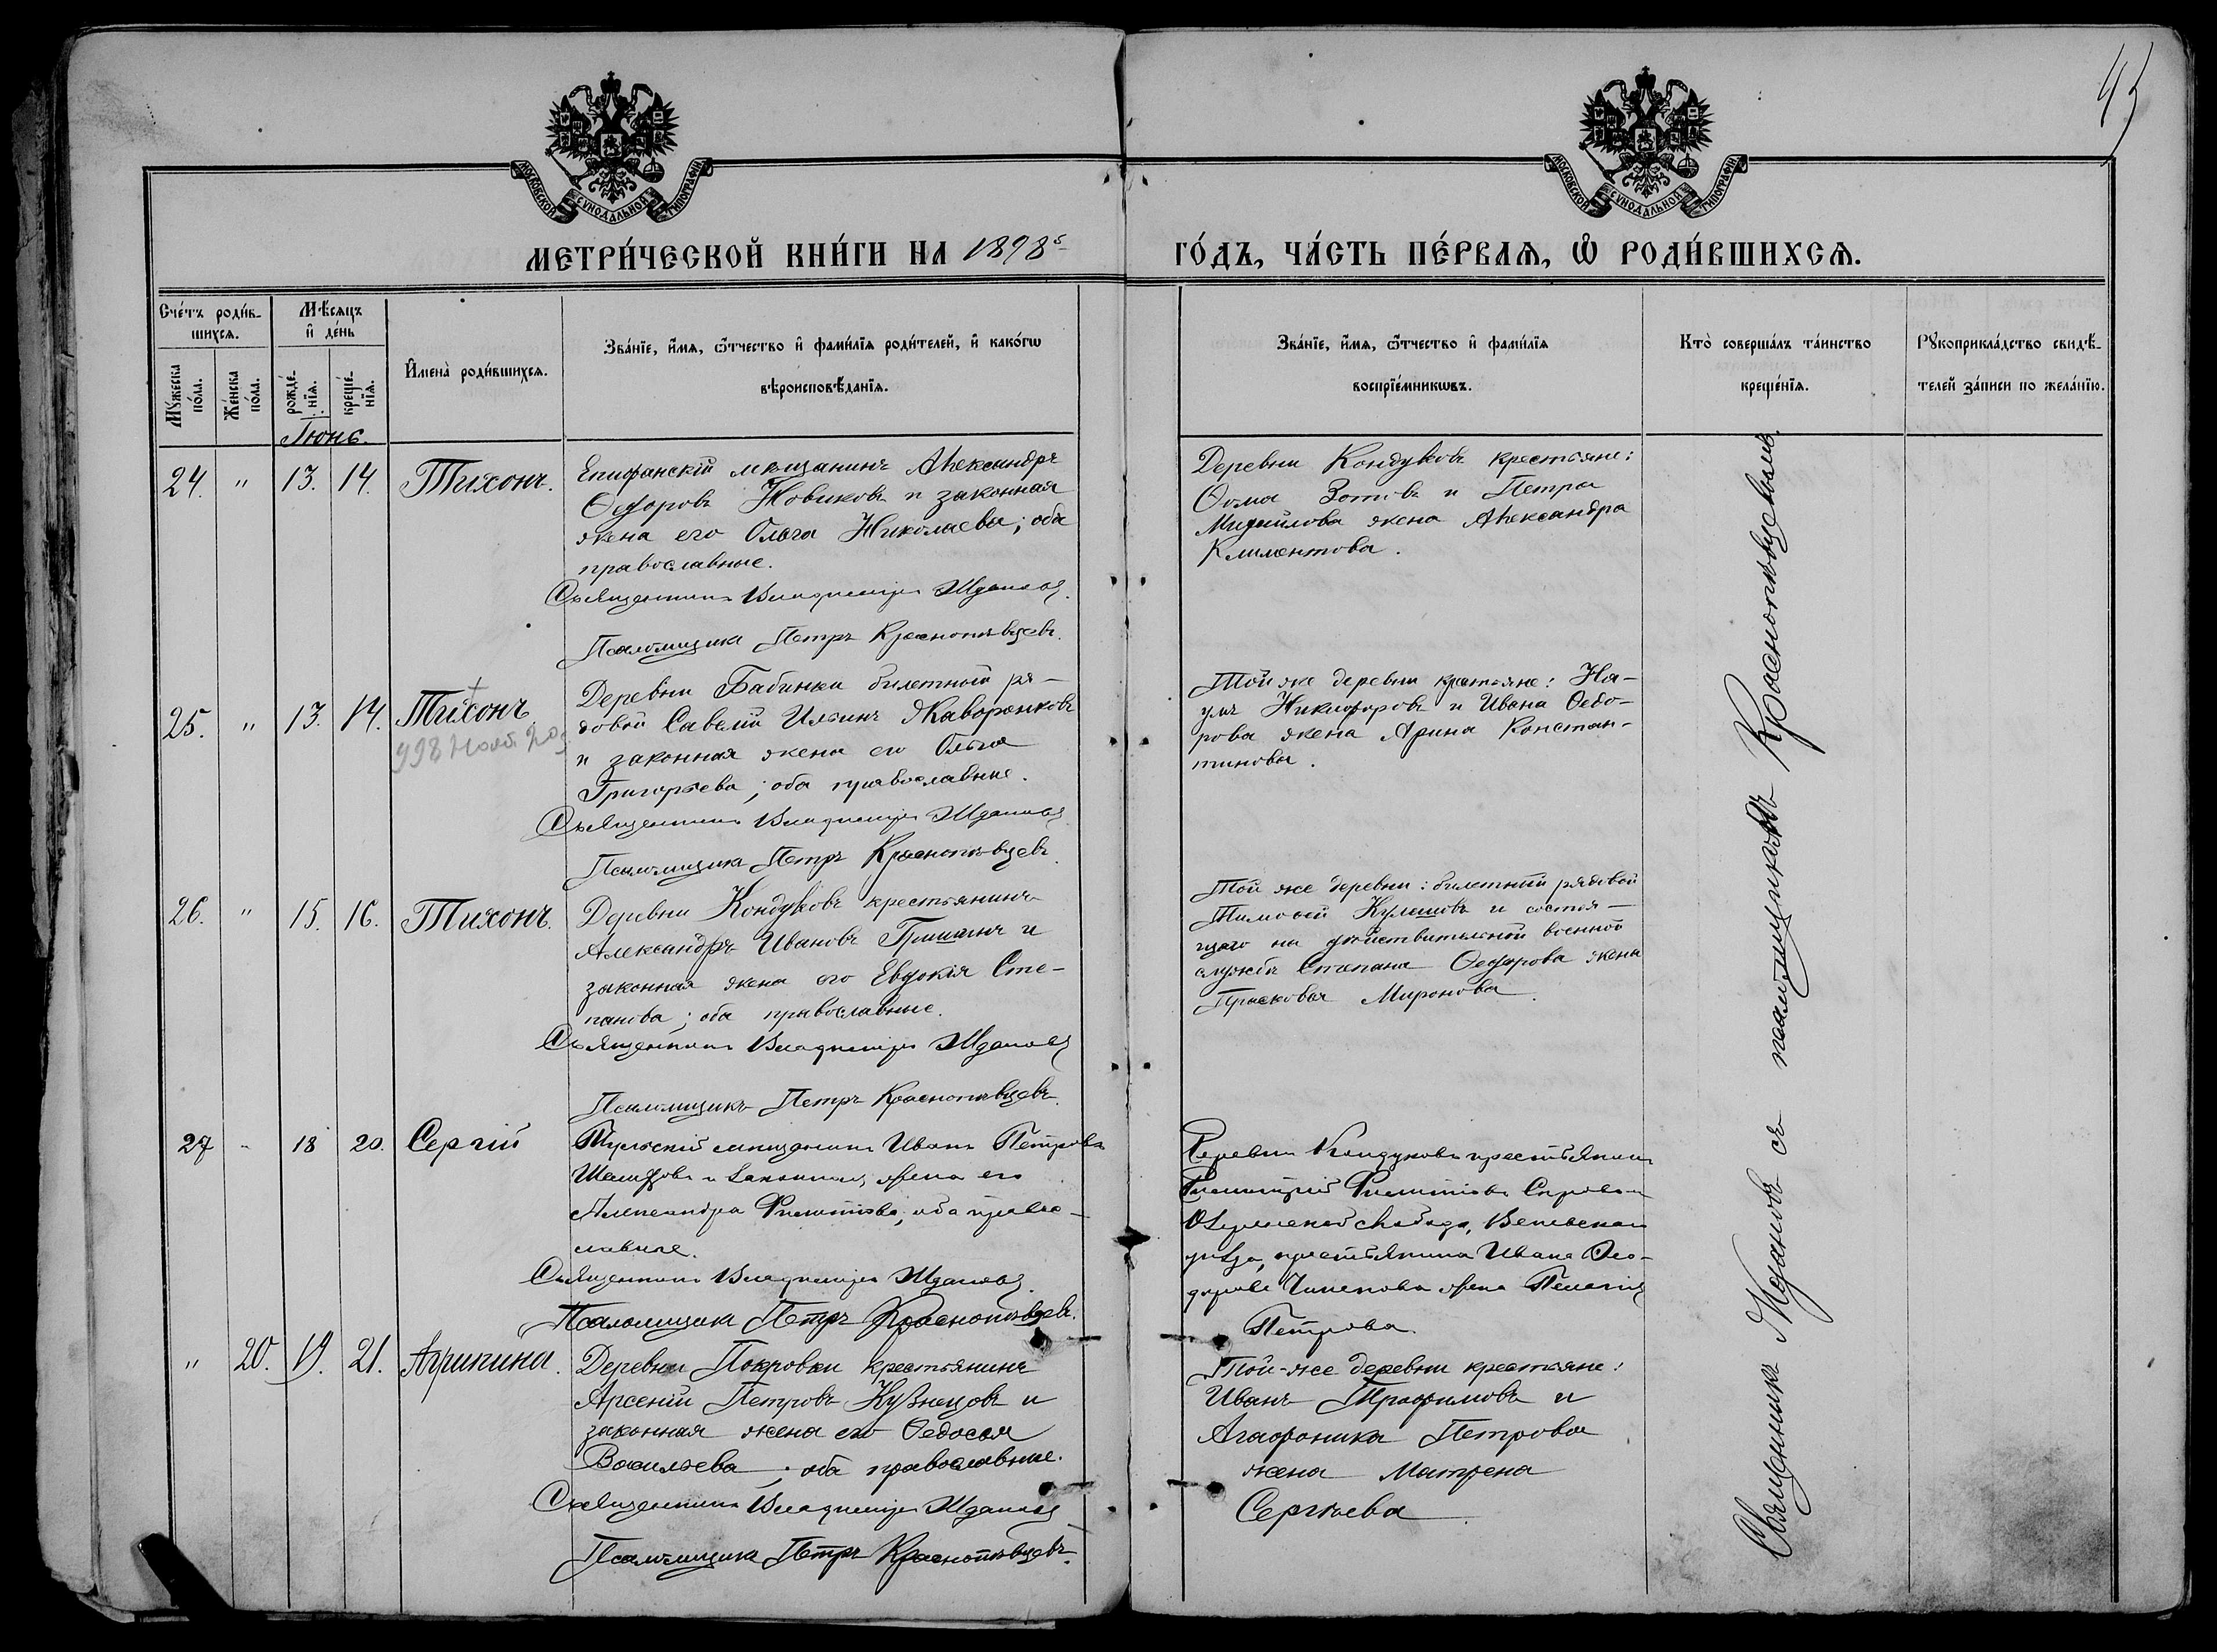 45
МОСКОВСКОЙ СѴНОДАЛЬНОЙ ТИПОГРАФІИ
МОСКОВСКОЙ СѴНОДАЛЬНОЙ ТИПОГРАФІИ
МЕТРИ́ЧЕСКОЙ КНИ́ГИ НА 1898
ГО́ДЪ, ЧА́СТЬ ПЕ́РВАѦ, Ѡ РОДИ́ВШИХСѦ.
Сче́тъ роди́в-
шихсѧ.
Му́жеска по́ла.
Же́нска по́ла.
Мѣ́сѧцъ
и҆ де́нь
рожде́-нїѧ.
креще́-нїѧ.
И҆мена̀ роди́вшихсѧ.
Зва́нїе, и҆́мѧ, ѻ҆́тчество и҆ фами́лїѧ роди́телей, и҆ како́гѡ
вѣроисповѣ́данїѧ.
Зва́нїе, и҆́мѧ, ѻ҆́тчество и҆ фами́лїѧ
воспрїе́мникѡвъ.
Кто̀ соверша́лъ та́инство
креще́нїѧ.
Рꙋкоприкла́дство свидѣ́-
телей за́писи по жела́нїю.
Іюнь.
24. " 13. 14. Тихонъ.
Епифанскій мѣщанинъ Александръ
Ѳедоровъ Новиковъ и законная
жена его Ольга Николаева; оба
православные.
Священникъ Владимиръ Ждановъ.
Псаломщикъ Петръ Краснопѣвцевъ.
Деревни Кондуковъ крестьяне:
Ѳома Зотовъ и Петра
Михайлова жена Александра
Климентова.
25. " 13. 14. Тихонъ.
Деревни Бабинки билетный ря-
довой Савелій Ильинъ Жаворонковъ
и законная жена его Ольга
Григорьева; оба православные.
Священникъ Владимиръ Ждановъ
Псаломщикъ Петръ Краснопѣвцевъ.
Той же деревни крестьяне: На-
умъ Никифоровъ и Ивана Ѳедо-
рова жена Арина Констан-
тинова.
26. " 15. 16. Тихонъ.
Деревни Кондуковъ крестьянинъ
Александръ Ивановъ Гришинъ и
законная жена его Евдокія Сте-
панова; оба православные.
Священникъ Владимиръ Ждановъ
Псаломщикъ Петръ Краснопѣвцевъ.
Той же деревни: билетный рядовой
Тимоѳей Кулешовъ и состоя-
щаго на дѣйствительной военной
службѣ Степана Ѳедорова жена
Прасковья Миронова.
27 " 18 20. Сергій
Тульскій мѣщанинъ Иванъ Петровъ
и законная жена его
Александра Филиппова, оба право-
славные.
Священникъ Владимиръ Ждановъ
Псаломщикъ Петръ Краснопѣвцевъ.
Деревни Кондуковъ крестьянинъ
Димитрій Филипповъ
Веневскаго
уѣзда, крестьянина Ивана Ѳео-
дорова жена Пелагія
Петрова.
" 20. 19. 21. Агрипина.
Деревни Покровки крестьянинъ
Арсеній Петровъ Кузнецовъ и
законная жена его Ѳедосья
Васильева; оба православные.
Священникъ Владимиръ Ждановъ
Псаломщикъ Петръ Краснопѣвцевъ.
Той-же деревни крестьяне:
Иванъ Трофимовъ и
Агафоника Петрова
жена Матрена
Сергѣева
Священникъ Ждановъ съ псаломщикомъ Краснопѣвцевымъ.